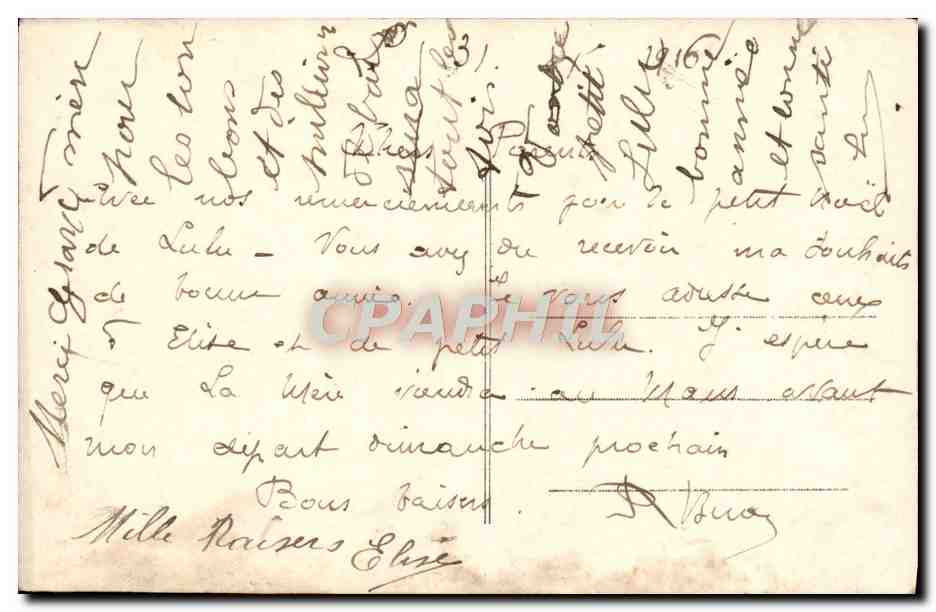 31. 1916.
Chers Parents
Avec nos remerciements pour le petit Noël
de Lulu - Vous avez du recevoir ma souhaits
de bonne année. Je vous adresse ceux
d Elise et de petit Lulu. J'espère
que La Mère viendra au Mans avant
mon départ dimanche prochain
Bons baisers.
Mille Baisers Elise
Merci Grand mère
pour
les bon
bons
et des
meilleurs
tout les
trois
petit
Lulu
bonne
année
et bonne
santé
CPAPHIL